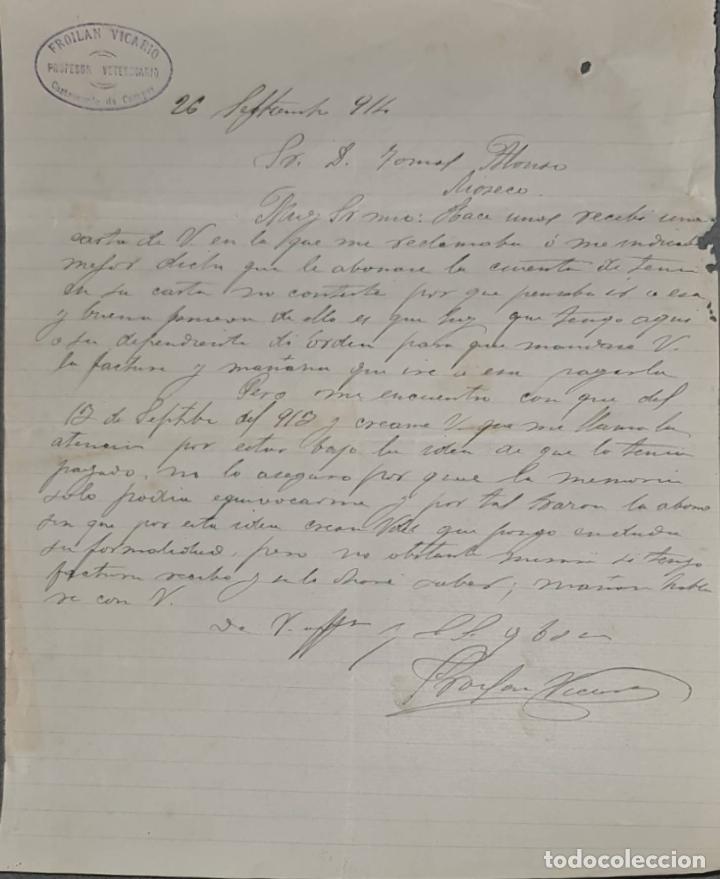 FROILAN VICARIO
PROFESOR VETERINARIO
de Campos
26 Septiembre 914
Sr. D. Tomas Alonso
Rioseco
Muy Sr mio: Hace unos recibi una
carta de V. en la que me reclamaba ó me indicaba
mejor dicho que le abonase la cuenta
en su carta no conteste por que pensaba ir a esa
y buena de ello es que hoy que tengo aqui
a su dependiente di orden para que mandase V.
la factura y mañana que ire a esa pagarla
Pero me encuentro con que del
12 de Septbre del 912 y creame V. que me llama la
atencion por estar bajo la idea de que lo tenia
pagado, no lo aseguro por que la memoria
solo podria equivocarme y por tal razon la abono
sin que por esta idea crean Vdes que pongo en duda
su formalidad, pero no obstante si tengo
factura recibo y se lo hare saber; mañana hable
re con V.
De V. affmo y S. S. q b s m
Froilan Vicario
todocoleccion.net